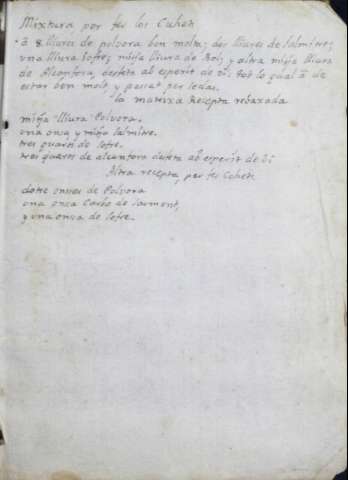 Mixtura per fer los Cuhets
ā 8 lliures de polvora ben molta; dos lliures de salnitre;
una lliura sofre; mitja lliura de Boli, y altra mitja lliura
de Alcanfora, desfeta ab esperit de vi: tot lo qual ā de
estar ben molt, y passat per sedas.
la mateixa Recepta rebaxada
mitja lliura Polvora.
una onsa y mitja salnitre.
tres quarts de sofre.
tres quarts de alcanfora desfeta ab esperit de vi
Altra recepta, per fer Cuhets
dotse onses de Polvora
una onsa Carbo de sarment,
y una onsa de sofre.